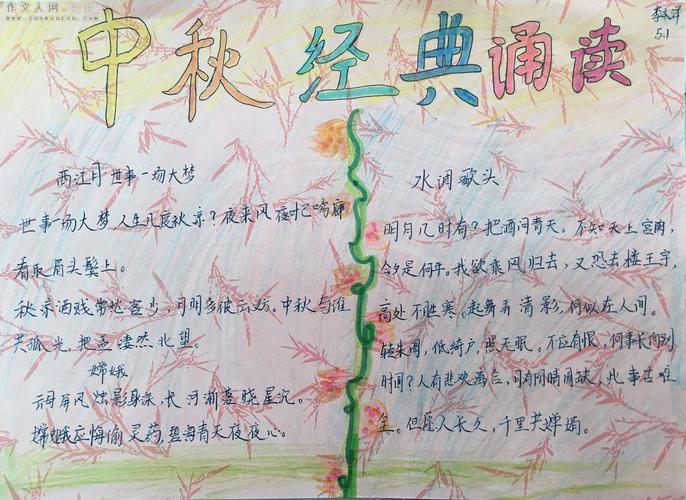 作文人网
www.zuowenren.com
中秋经典诵读
5.1
西江月 世事一场大梦
世事一场大梦,人生几度秋凉?夜来风夜已鸣廊
看取眉头鬓上。
秋来酒贱常愁客少,月明多被云妨。中秋与谁
共孤光,把盏凄然北望。
嫦娥
云母屏风烛影深,长河渐落晓星沉。
嫦娥应悔偷灵药,碧海青天夜夜心。
水调歌头
明月几时有?把酒问青天。不知天上宫阙,
今夕是何年。我欲乘风归去,又恐去楼王宇,
高处不胜寒。起舞弄清影,何似在人间。
转朱阁,低绮户,照无眠。不应有恨,何事长向别
时间?人有悲欢离合,月有阴晴圆缺,此事古难
全。但愿人长久,千里共婵娟。